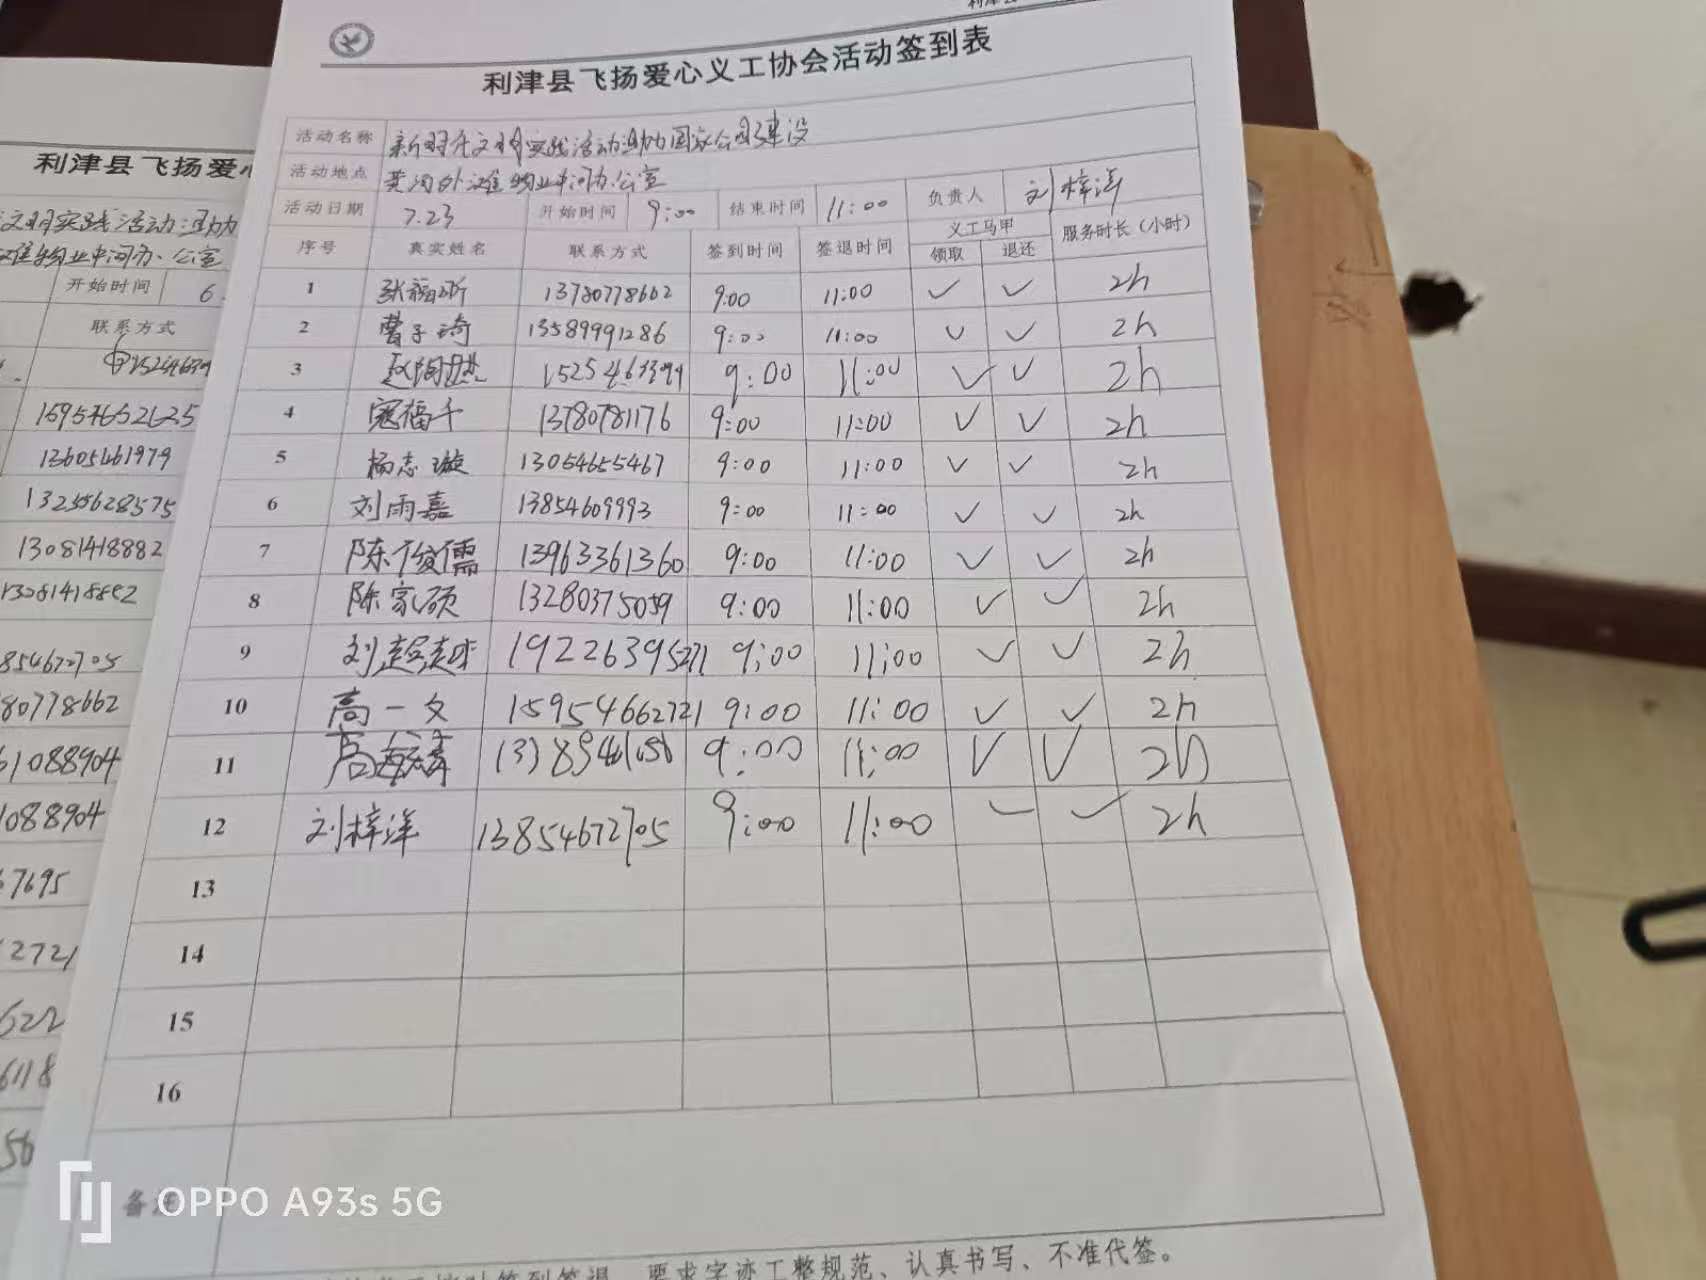 利津县飞扬爱心义工协会活动签到表
活动名称 新时代文明实践活动助力国家公园建设
活动地点 黄河外滩物业中间办公室
活动日期 7.23 开始时间 9:00 结束时间 11:00 负责人 刘梓洋
序号 真实姓名 联系方式 签到时间 签退时间 义工马甲 服务时长（小时）
领取 退还
1 张福昕 13780778662 9:00 11:00 ✓ ✓ 2h
2 曹子琦 13589991286 9:00 11:00 ✓ ✓ 2h
3 9:00 11:00 ✓ ✓ 2h
4 寇福千 13780781176 9:00 11:00 ✓ ✓ 2h
5 杨志璇 13054655467 9:00 11:00 ✓ ✓ 2h
6 刘雨嘉 13854609993 9:00 11:00 ✓ ✓ 2h
7 陈俊儒 13963361360 9:00 11:00 ✓ ✓ 2h
8 陈家硕 13280375059 9:00 11:00 ✓ ✓ 2h
9 19226395271 9:00 11:00 ✓ ✓ 2h
10 高一文 15954662721 9:00 11:00 ✓ ✓ 2h
11 9:00 11:00 ✓ ✓ 2h
12 刘梓洋 13854672705 9:00 11:00 ✓ ✓ 2h
13
14
15
16
备注
要求字迹工整规范、认真书写、不准代签。
利津县飞扬爱心
文明实践活动助力
滩物业中间办公室
开始时间 6
联系方式
15954652625
13605461979
13255628575
13081418882
13081418882
854672705
80778662
61088904
1088904
7695
2721
622
6118
56
OPPO A93s 5G